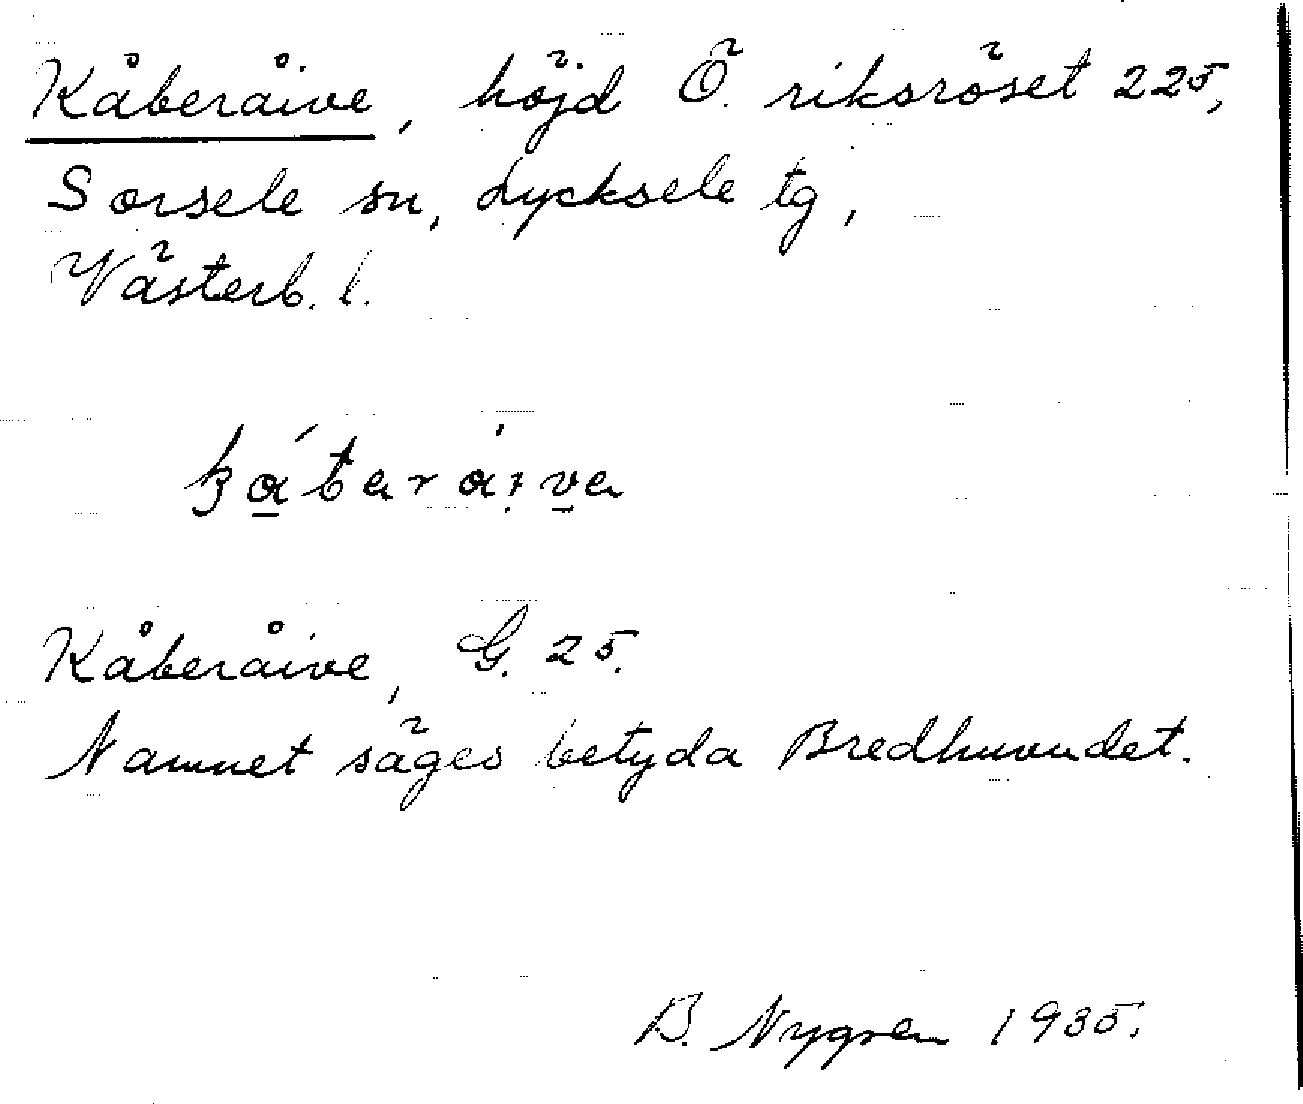 Kåberåive, höjd Ö. riksröset 225,
Sorsele sn, Lycksele tg,
Västerb. l.
Kåberåive, G. 25.
Namnet säges betyda Bredhuvudet.
B. Nygren 1935.